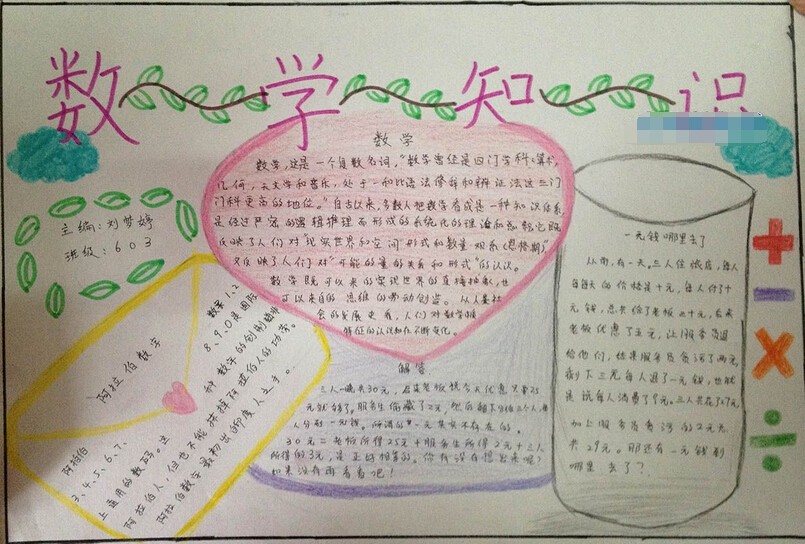 数学知识
主编:刘梦婷
班级:603
数学
数学,这是一个复数名词,"数学曾经是四门学科:算术,
几何,天文学和音乐,处于一种比语法修辞和辩证法这三门
门科更高的地位。"自古以来,多数人把数学看成是一种知识体系,
是经过严密的逻辑推理而形成的系统化的理论知识总和,它既
反映了人们对"现实世界的空间形式和数量关系(恩格斯)"
又反映了人们对"可能的量的关系和形式"的认识。
数学既可以来自现实世界的直接抽象,也
可以来自的思维的劳动创造。从人类社
会的发展史看,人们对数学本
特征的认识知在不断变化。
解答
三人一晚共30元,后来老板说今天优惠只要25
元就够了,服务生偷藏了2元,然后
人分到一元钱。所谓的另一元其实不存在的。
30元=老板所得25元+服务生所得2元+三人
所得的3元,是正好相等的。你有没有想出来呢?
如果没有再看看吧!
一元钱哪里去了
从前,有一天,三人住旅店,每人
每天的价格是十元,每人付了十
元钱,总共给了老板三十元,后来
老板优惠了五元,让服务员退
给他们,结果服务员贪污了两元,
剩下三元每人退了一元钱,也就
是说每人消费了9元。三人共花了27元,
加上服务员贪污的2元元
共29元。那还有一元钱到
哪里去了?
阿拉伯数字
阿拉伯数字1.2
3.4.5.6.7.8.9.0是国际
上通用的数码。这种数字的创制
阿拉伯人,但也不能抹掉阿拉伯人的功劳。
阿拉伯数字最初出自印度人之手。